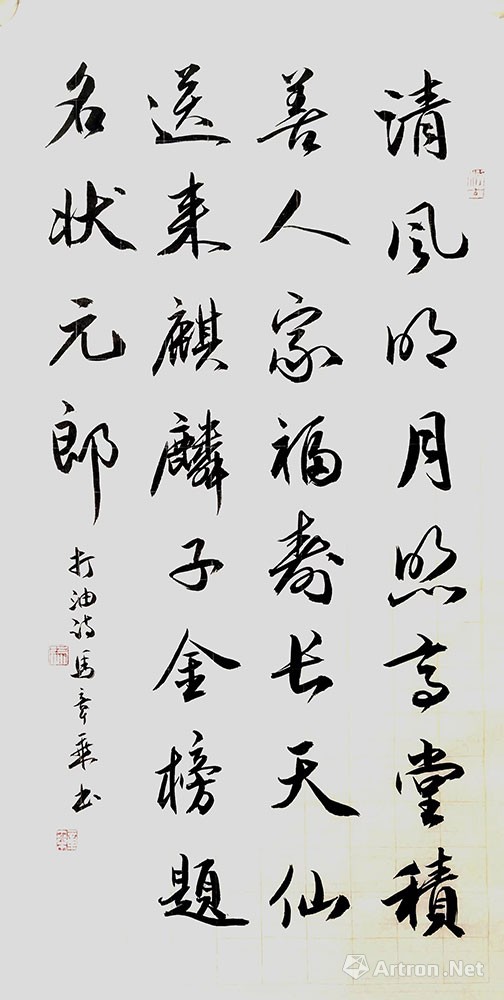 清风明月照高堂積
善人家福寿长天仙
送来麒麟子金榜題
名状元郎
打油诗馬章乗书
Artron.Net